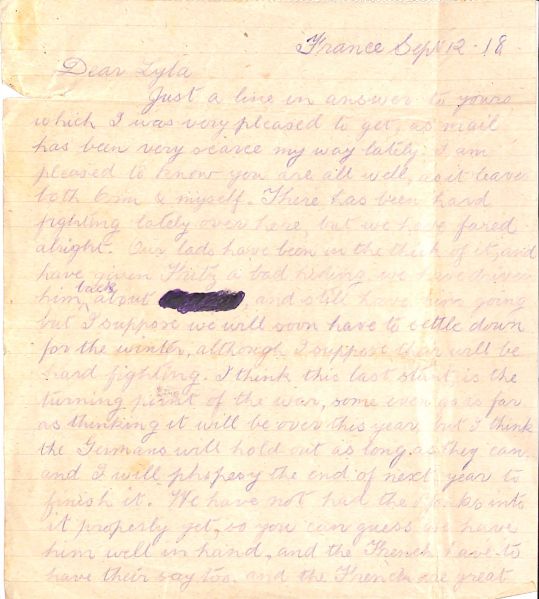 France Sept 12 - 18
Dear Lyla
Just a line in answer to yours
which I was very pleased to get, as mail
has been very scarce my way lately. I am
pleased to know you are all well, as it leaves
both & myself. There has been hard
fighting lately over here, but we have fared
alright. Our lads have been in the thick of it, and
have given Fritz a bad hiding, we have driven
him back about and still have him going
but I suppose we will soon have to settle down
for the winter, although I suppose their will be
hard fighting. I think this last stunt is the
turning point of the war, some even go as far
as thinking it will be over this year, but I think
the Germans will hold out as long as they can
and I will phopesy the end of next year to
finish it. We have not had the into
it properly yet, so you can guess we have
him well in hand, and the French have to
have their say too. and the French are great